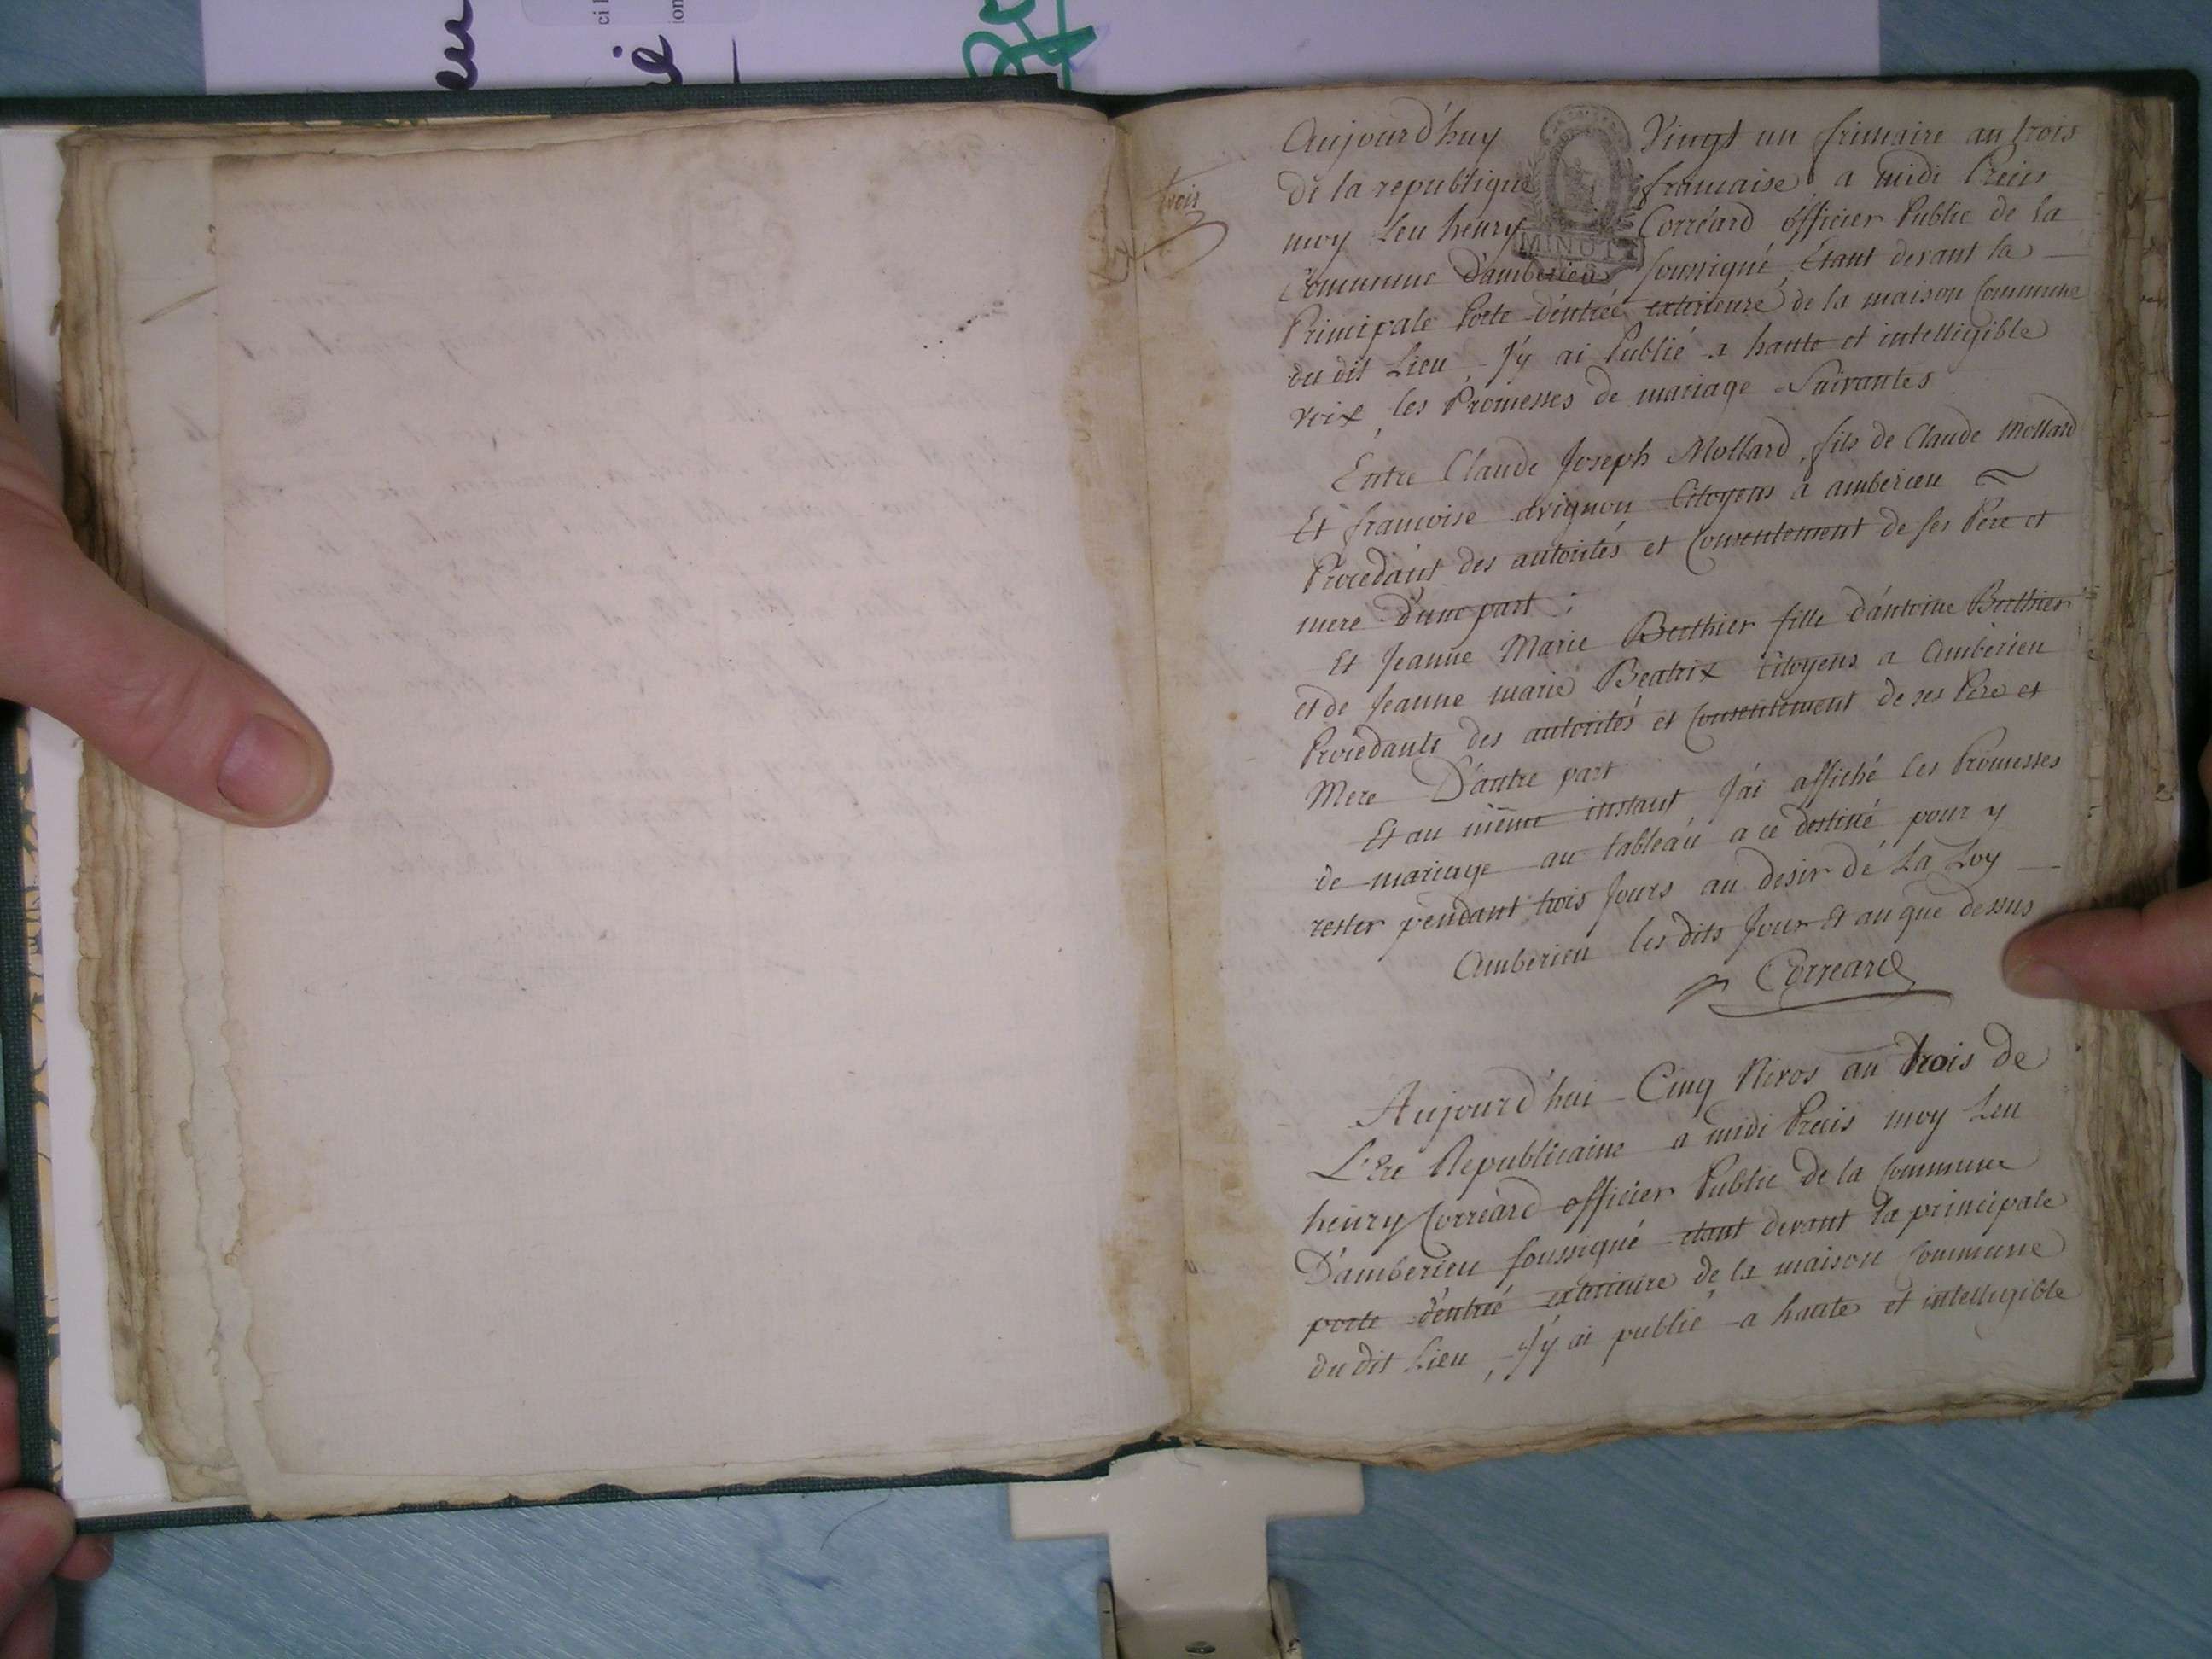 trois
Aujourd'huy Vingt un frimaire an trois
de la republique francaise a midi Precis
moy Leu henry Corréard officier Public de la
MINUT
Commune D'amberieu soussigné, Etant devant la
Principale Porte d'entrée exterieure de la maison Commune
du dit Lieu, J'y ai Publié a haute et intelligible
voix, les Promesses de mariage Suivantes
Entre Claude Joseph Mollard, fils de Claude Mollard
Et francoise avignon Citoyens a amberieu
Procedant des autorités et Consentement de ses Pere et
mere D'une part ;
Et Jeanne Marie Berthier fille d'antoine Berthier
et de Jeanne marie Beatrix Citoyens a Amberieu
Procedante des autorités et Consentement de ses Pere et
Mere D'autre part
Et au même instant J'ai affiché les Promesses
de mariage au tableau a ce destiné pour y
rester pendant trois Jours au desir de La Loy
Amberieu les dits Jour Et an que dessus
Correard
Aujourd'hui Cinq Nivos an trois de
L'Ere Republicaine a midi Precis moy Leu
henry Corréard officier Public de la Commune
D'amberieu soussigné etant devant la principale
porte d'entrée exterieure de la maison Commune
du dit Lieu, J'y ai publié a haute et intelligible